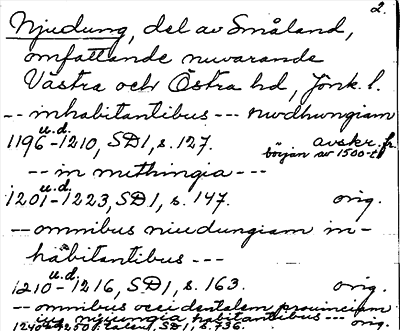 2.
Njudung, del av Småland,
omfattande nuvarande
Västra och Östra hd, Jönk. l.
-- inhabitantibus --- nwdhwngiam
1196 u.d. -1210, SD1, s. 127. avskr. fr. början av 1500-t.
-- in nuthingia ---
1201 u.d. -1223, SD1, s. 147. orig.
-- omnibus niudungiam in-
habitantibus ---
1210 u.d. -1216, SD1, s. 163. orig.
-- omnibus occidentalem prouinciam
habitantibus --- orig.
SD1, s. 736.